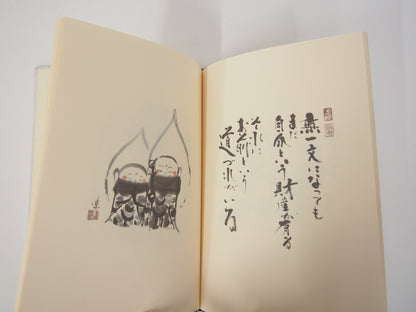 無一文になっても
まだ
自分という財産が有る
それに
お前という
道づれがいる